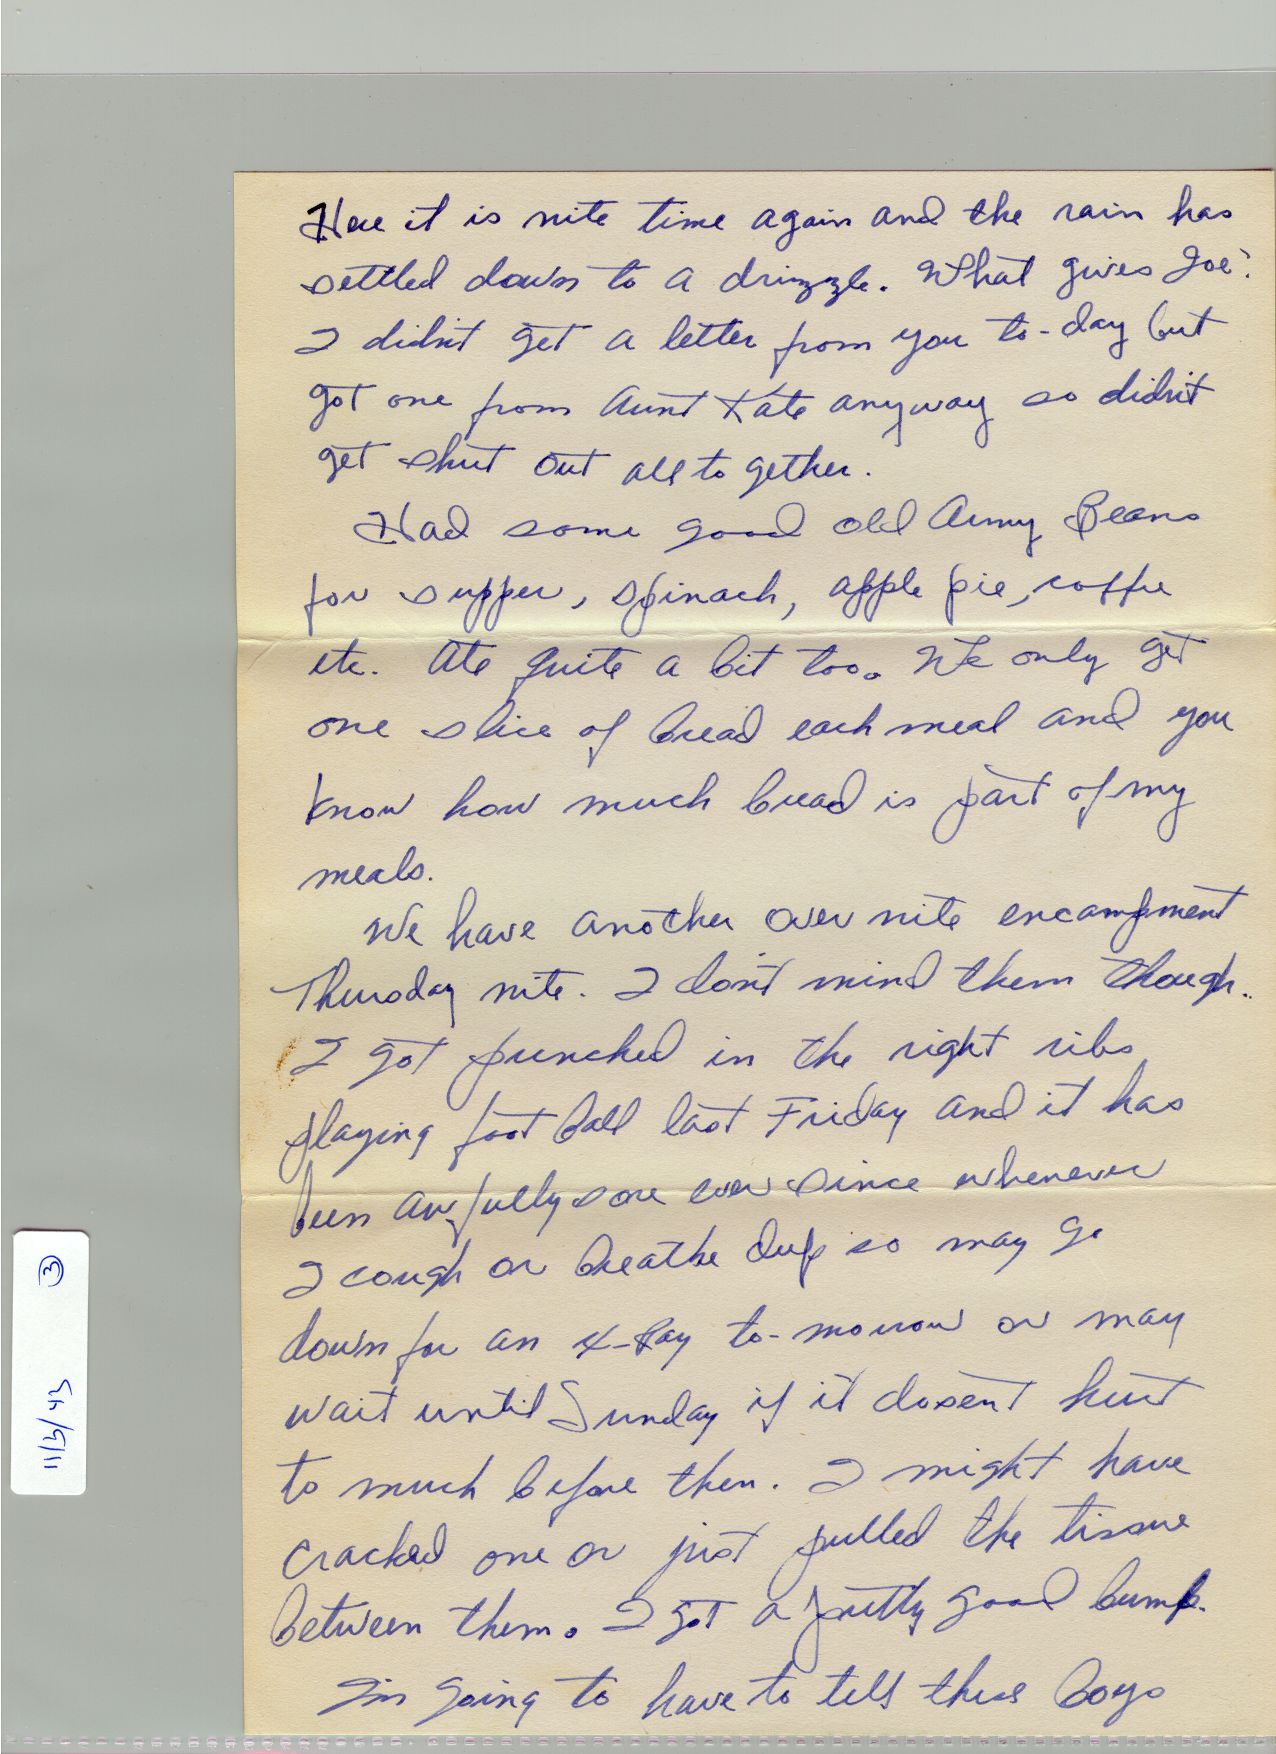 Here it is nite time again and the rain has
settled down to a drizzle. What gives Joe?
I didn't get a letter from you to-day but
got one from Aunt Kate anyway so didn't
get shut out all to gether.
Had some good old Army Beans
for supper, spinach, apple pie, coffie
etc. Ate quite a bit too. We only get
one slice of bread each meal and you
know how much bread is part of my
meals.
We have another over nite encampment
Thursday nite. I don't mind them though.
I got punched in the right ribs
playing foot ball last Friday and it has
been awfully sore ever since whenever
I cough or breathe deep so may go
down for an X-Ray to-morrow or may
wait until Sunday if it dosent hurt
to much before then. I might have
cracked one or just pulled the tissue
between them. I got a pretty good bump.
I'm going to have to tell these boys
11/3/43 3